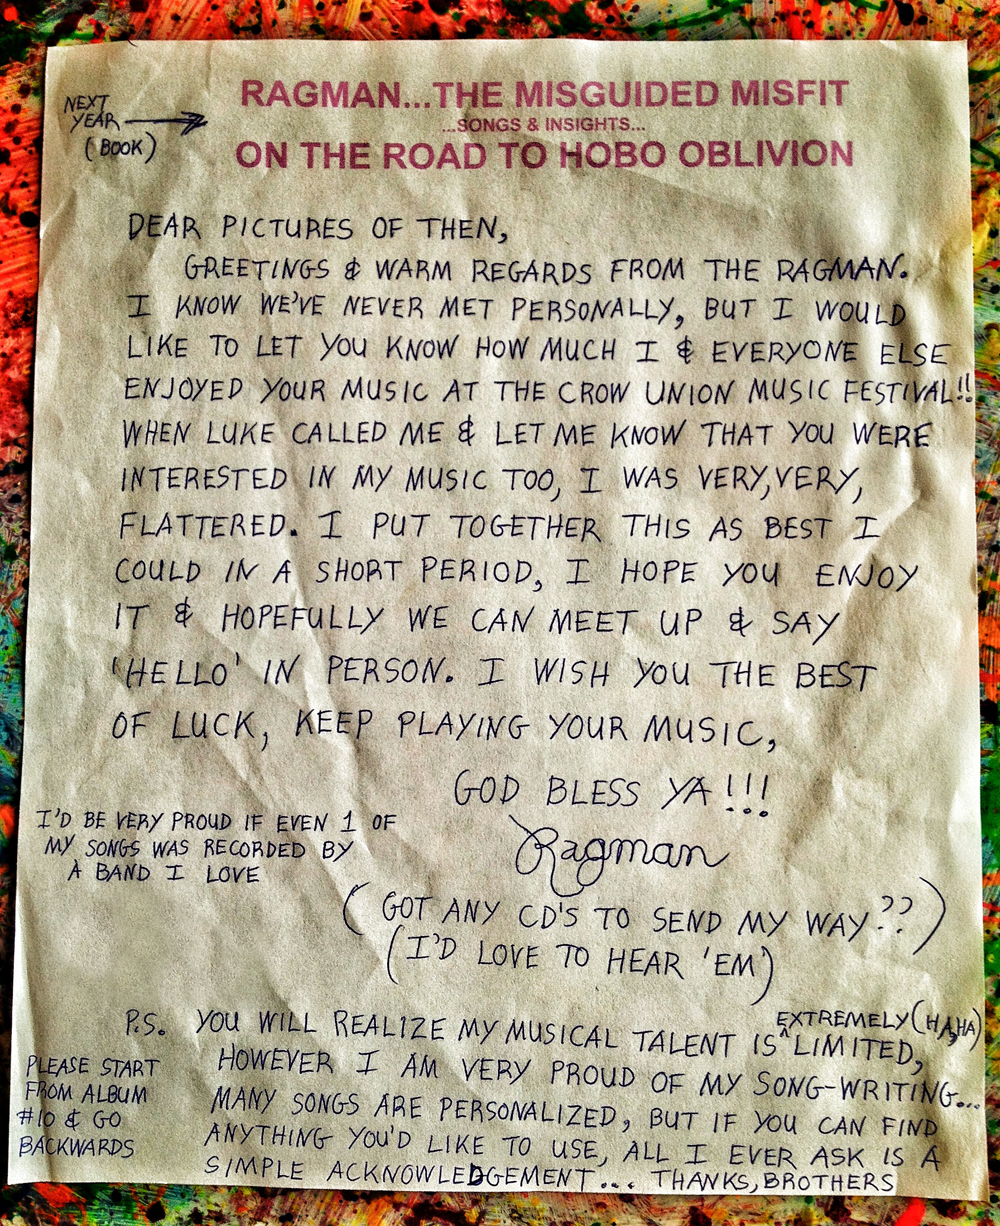 NEXT
YEAR
(BOOK)
RAGMAN...THE MISGUIDED MISFIT
...SONGS & INSIGHTS...
ON THE ROAD TO HOBO OBLIVION
DEAR PICTURES OF THEN,
GREETINGS & WARM REGARDS FROM THE RAGMAN.
I KNOW WE'VE NEVER MET PERSONALLY, BUT I WOULD
LIKE TO LET YOU KNOW HOW MUCH I & EVERYONE ELSE
ENJOYED YOUR MUSIC AT THE CROW UNION MUSIC FESTIVAL!!
WHEN LUKE CALLED ME & LET ME KNOW THAT YOU WERE
INTERESTED IN MY MUSIC TOO, I WAS VERY, VERY,
FLATTERED. I PUT TOGETHER THIS AS BEST I
COULD IN A SHORT PERIOD, I HOPE YOU ENJOY
IT & HOPEFULLY WE CAN MEET UP & SAY
'HELLO' IN PERSON. I WISH YOU THE BEST
OF LUCK, KEEP PLAYING YOUR MUSIC,
GOD BLESS YA!!!
Ragman
I'D BE VERY PROUD IF EVEN 1 OF
MY SONGS WAS RECORDED BY
A BAND I LOVE
(GOT ANY CD'S TO SEND MY WAY??)
(I'D LOVE TO HEAR 'EM)
P.S. YOU WILL REALIZE MY MUSICAL TALENT IS ^EXTREMELY (HA,HA) LIMITED,
HOWEVER I AM VERY PROUD OF MY SONG-WRITING...
MANY SONGS ARE PERSONALIZED, BUT IF YOU CAN FIND
ANYTHING YOU'D LIKE TO USE, ALL I EVER ASK IS A
SIMPLE ACKNOWLEDGEMENT... THANKS, BROTHERS
PLEASE START
FROM ALBUM
#10 & GO
BACKWARDS